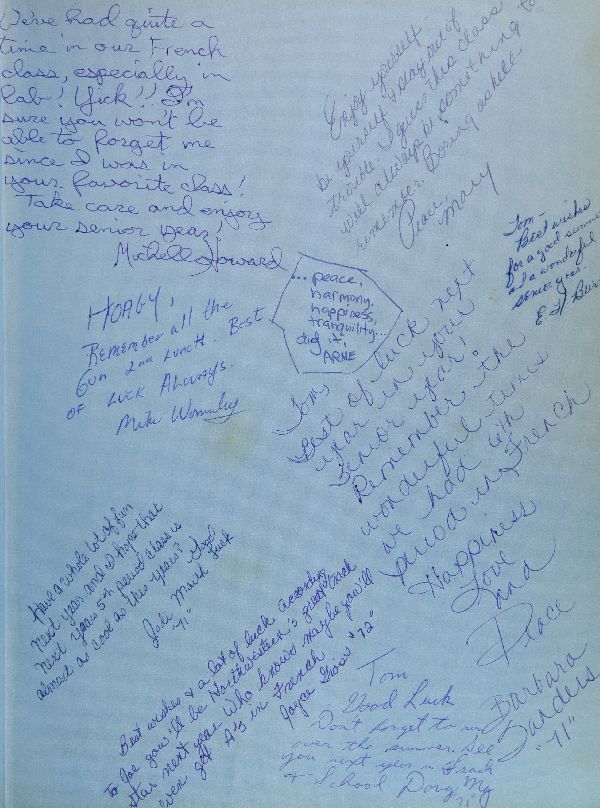 We've had quite a
time in our French
class, especially in
lab! Yick!! I'm
sure you won't be
able to forget me
since I was in
your favorite class!
Take care and enjoy
your senior year!
Michelle Howard
Enjoy yourself -
be yourself & stay out of
trouble. I guess this class
will always be something to
remember. Boring as hell -
Peace
Mary
Tom -
Best wishes
for a good summer
and a wonderful
senior year.
...peace,
harmony,
happiness,
tranquility...
dig it,
ARNE
HORGY,
Remember all the
fun 2nd Lunch. Best
OF Luck Always.
Mike
Tom,
Best of luck next
year in your
Senior year!
Remember the
wonderful times
we had 6th
period in French
Happiness
Love
and
Peace
Barbara
Sanders
"71"
Have a whole lot of fun
next year and I hope that
next years 5th period class is
almost as cool as this years!
Good
Luck
Judy Marsh
"71"
Best wishes & a lot of luck. According
to Joe you'll be Northwestern's great track
star next year. Who knows maybe you'll
even get A's in French.
Joyce "72"
Tom
Good Luck
Don't forget to run
over the summer. See
you next year in track
& School Doug